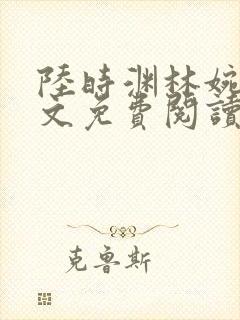 陸時渊林婉
文免費閱讀
克鲁斯